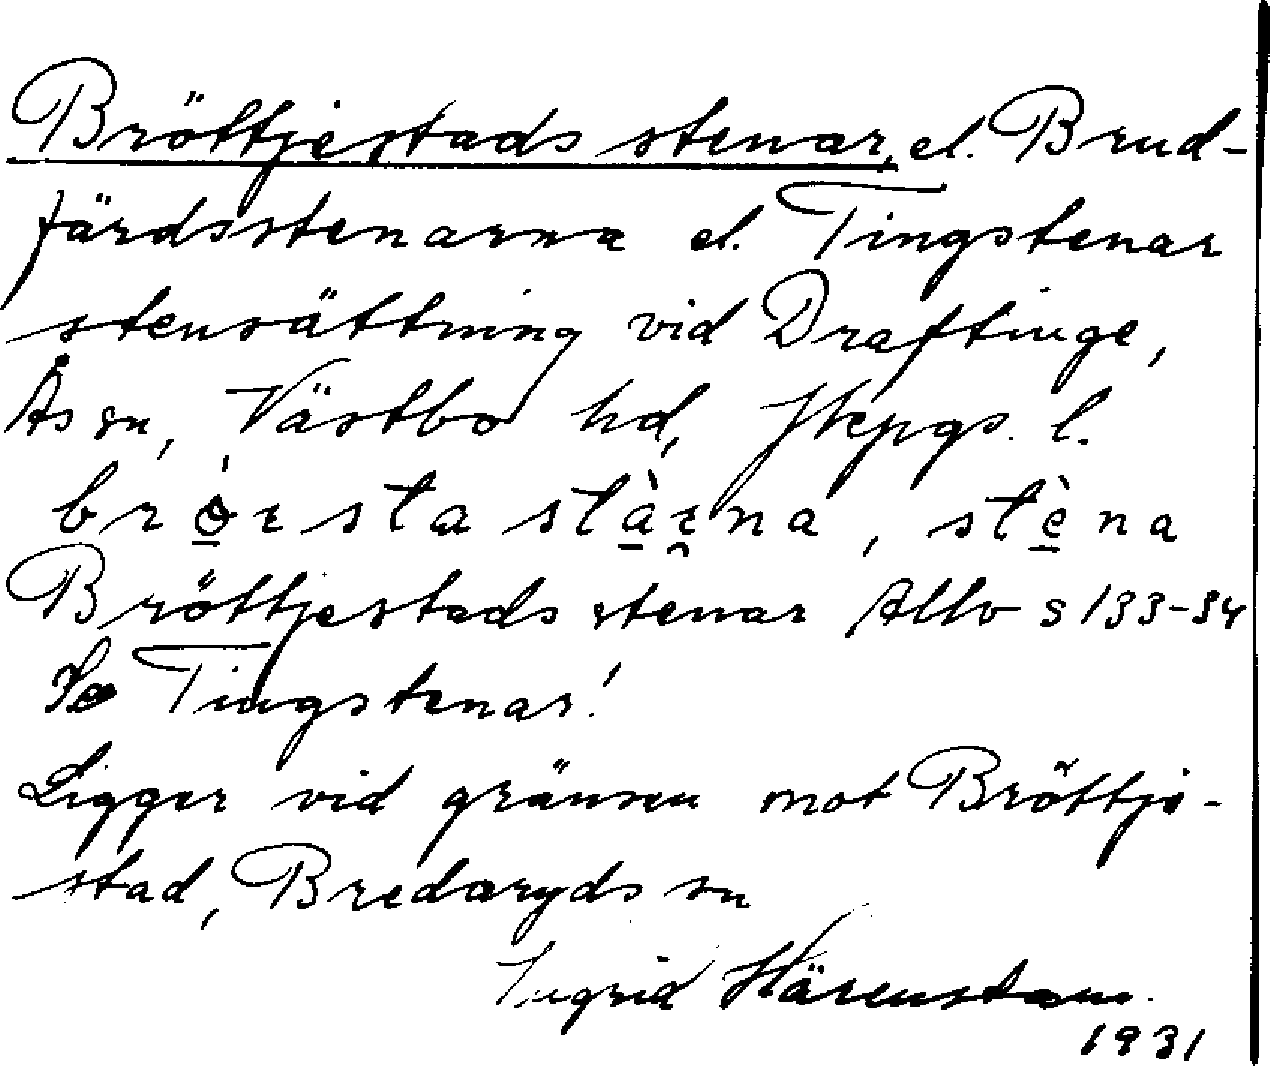 Bröttjestads stenar, el. Brud-
färdsstenarna el. Tingstenar
stensättning vid Draftinge,
Ås sn, Västbo hd, Jkpgs. l.
brò̲ɛsta stà̲ɛ̯na, stè̲na
Bröttjestads stenar Allv s 133-34
Se Tingstenar!
Ligger vid gränsen mot Bröttje-
stad, Bredaryds sn
Ingrid Härenstam
1931